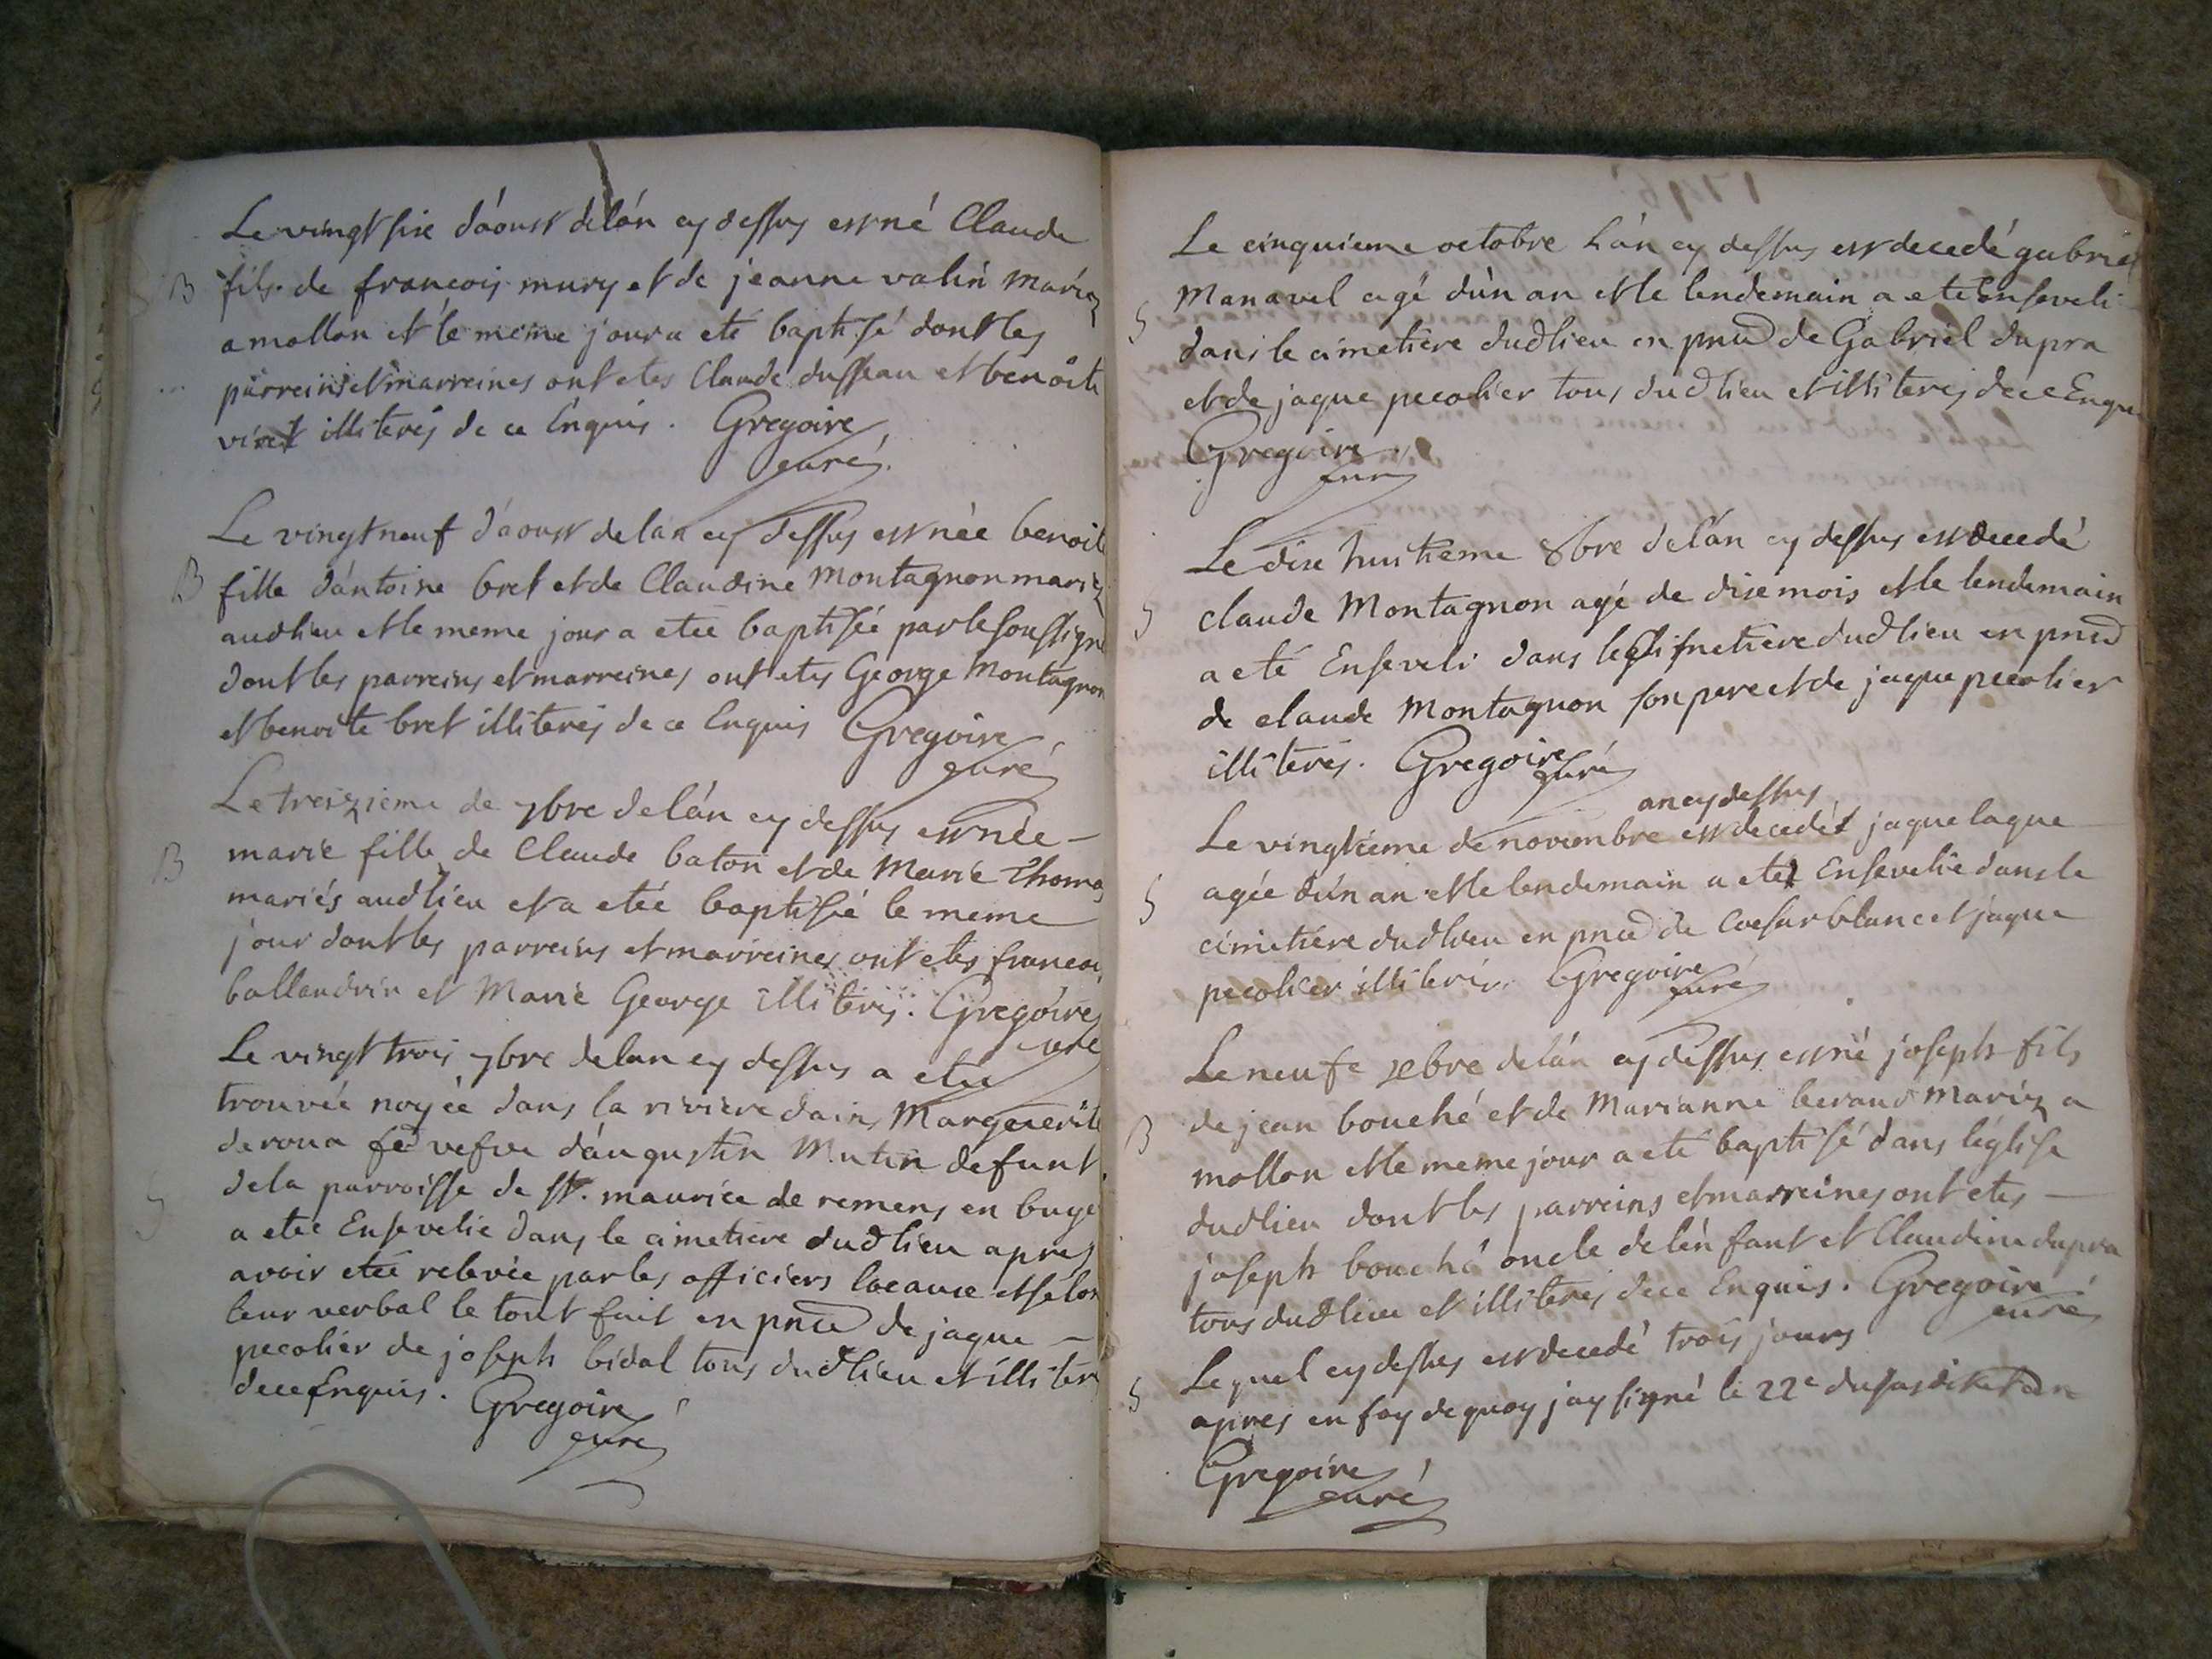 Le vingt six d'áoust delán cy dessus est né Claude
B fils de françois mury et de jeanne valin mariez
a mollon et le meme jour a eté baptisé dont les
parreins et marreines ont etes Claude dusseau et benoite
viret illiterés de ce Enquis. Gregoire
curé
Le vingt neuf d'aoust delan cy dessus est née benoite
B fille d'antoine bret et de Claudine Montagnon mariez
audlieu et le meme jour a etee baptisée par le soussigné
dont les parreins et marreines ont etes George Montagnon
et benoite bret illiterés de ce Enquis Gregoire
curé
Le treizieme de 7bre delán cy dessus est née
B marie fille de Claude baton et de Marie Thomas
mariés audlieu et a eteé baptisée le meme
jour dont les parreins et marreines ont etes francois
ballandrin et Marie George illiterés. Gregoire
curé
Le vingt trois 7bre delan cy dessus a etee
trouvée noyée dans la riviere dain Marguerite
deroua vefve d'áugustin Mutin defunt
S dela parroisse de st. maurice de remens en bugey
a etee Ensevelie dans le cimetiere dudlieu apres
avoir etee relevée par les officiers locaux et selon
leur verbal le tout fait en pnce de jaque
pecolier de joseph bidal tous dudlieu et illiter
dece Enquis. Gregoire
curé
1746
Le cinquieme octobre L'án cy dessus est decedé gabriel
S Manavel agé dún an et le lendemain a eté Enseveli
dans le cimetiere dudlieu en pnce de Gabriel dupra
et de jaque pecolier tous dudlieu et illiterés dece Enquis
Gregoire
curé
Le dix huitieme 8bre delán cy dessus est decedé
S claude Montagnon agé de dix mois et le lendemain
a eté Enseveli dans le cimetiere dudlieu en pnce
de claude Montagnon son pere et de jaque pecolier
illiterés. Gregoire curé
an cy dessus
Le vingtieme de novembre est decedée jaque laque
S agée dún an et le lendemain a eté Ensevelie dans le
cimetiere dudlieu en pnce de Coesar blanc et jaque
pecolier illiterés. Gregoire
curé
Le neufe xbre delán cy dessus est né joseph fils
B de jean bouché et de Marianne beraud Mariez a
mollon et le meme jour a eté baptisé dans léglise
dudlieu dont les parreins et marreines ont etes
joseph bouché oncle delén fant et Claudine dupra
tous dudlieu et illiterés dece Enquis. Gregoire
curé
Lequel cy dessus est decedé trois jours
S apres en foy de quoy jay signé le 22e du susdit et an
Gregoire
curé